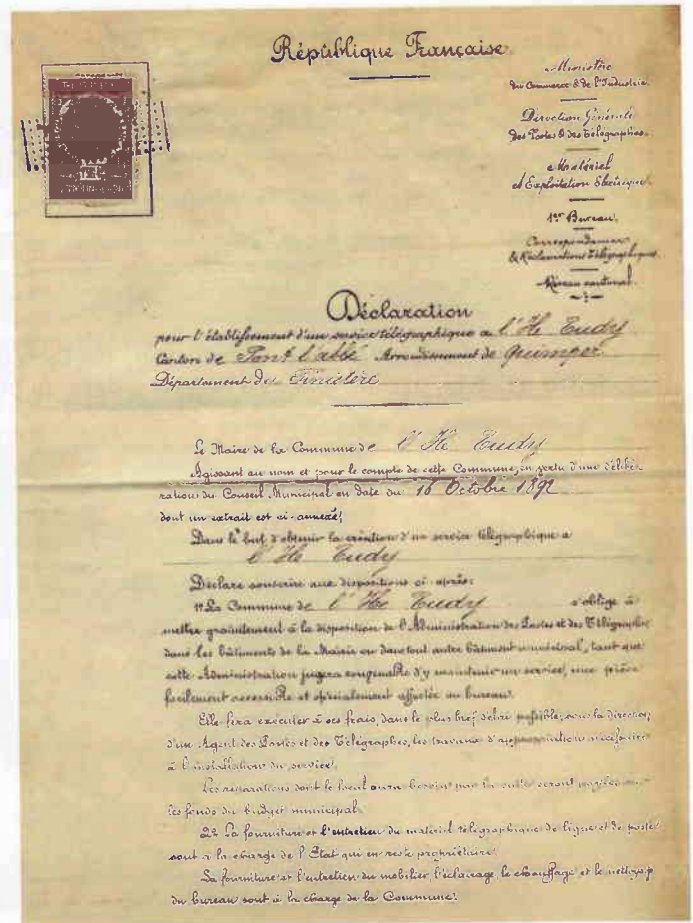 République Française
Ministère
du Commerce & de l'Industrie
Direction Générale
des Postes & des Télégraphes.
Matériel
et Exploitation Électrique.
1er Bureau.
Correspondances
& Réclamations Télégraphiques.
Réseau cantonal.
Déclaration
pour l'établissement d'un service télégraphique a l'Ile Tudy
Canton de Pont l'abbé Arrondissement de Quimper
Département du Finistère
Le Maire de la Commune de l'Ile Tudy
Agissant au nom et pour le compte de cette Commune, en vertu d'une délibé-
ration du Conseil Municipal en date du 16 Octobre 1892
dont un extrait est ci-annexé;
Dans le but d'obtenir la création d'un service télégraphique a
l'Ile Tudy
Déclare souscrire aux dispositions ci-après:
1º La Commune de l'Ile Tudy s'oblige à
mettre gratuitement à la disposition de l'Administration des Postes et des Télégraphes
dans les bâtiments de la Mairie ou dans tout autre bâtiment municipal, tant que
cette Administration jugera convenable d'y maintenir un service, une pièce
facilement accessible et spécialement affectée au bureau.
Elle fera exécuter à ses frais, dans le plus bref délai possible, sous la direction
d'un Agent des Postes et des Télégraphes, les travaux d'appropriation nécessaires
à l'installation du service.
Les réparations dont le local aura besoin par la suite seront payées
les fonds du budget municipal.
2º La fourniture et l'entretien du matériel télégraphique de ligne et de poste
sont à la charge de l'Etat qui en reste propriétaire.
La fourniture et l'entretien du mobilier, l'éclairage, le chauffage et le nettoyage
du bureau sont à la charge de la Commune.